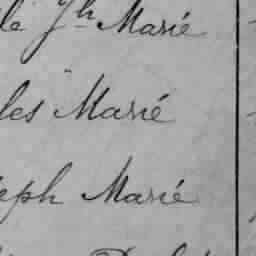 le Jh Marié
les Marié
eph Marié